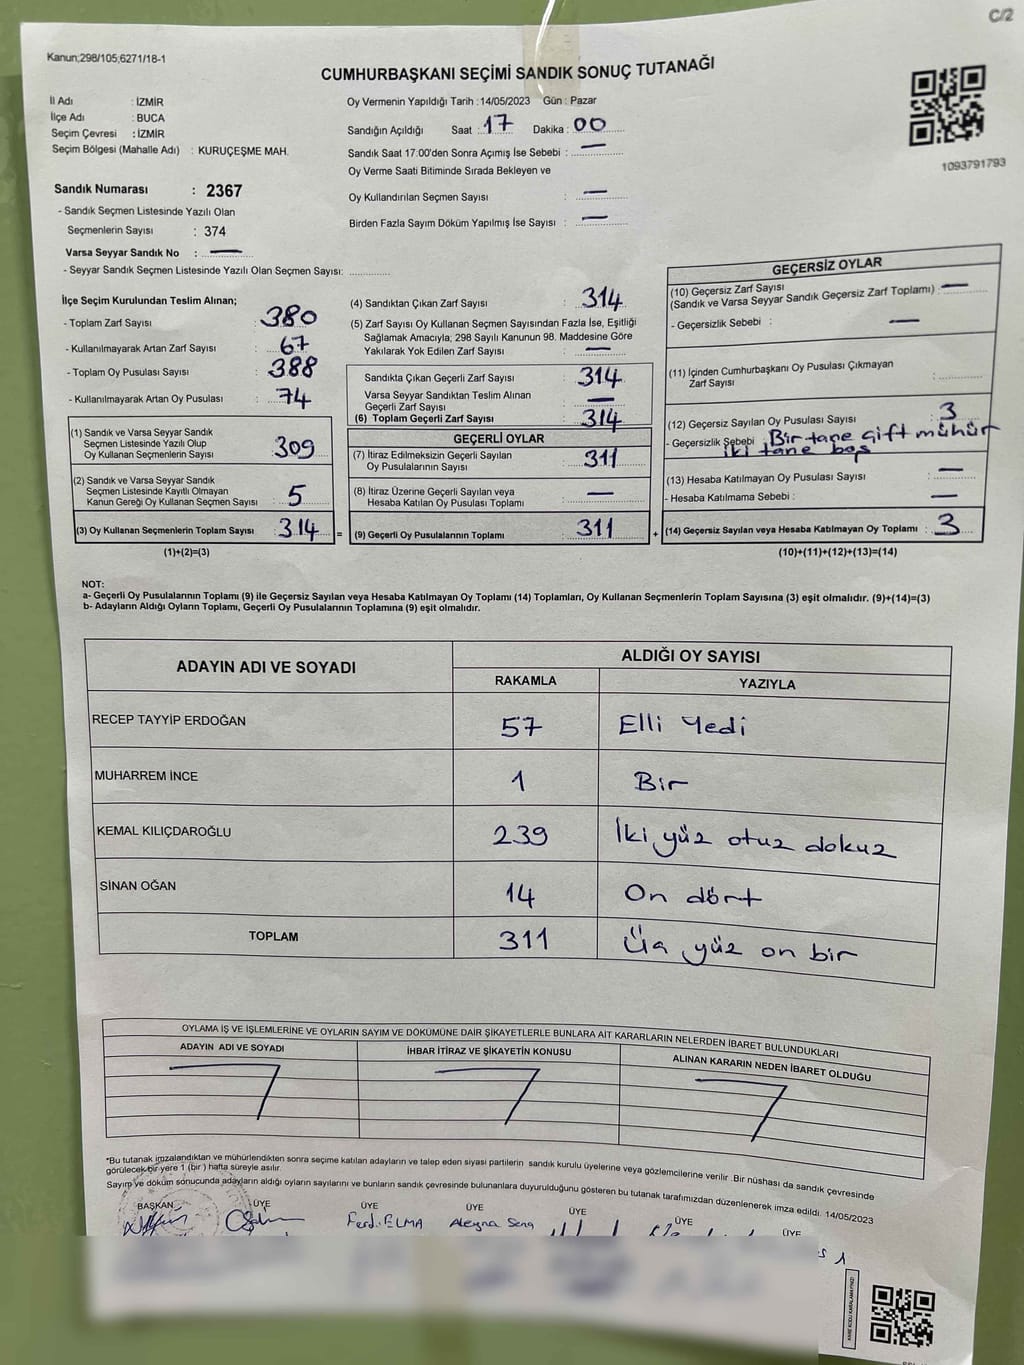 C/2
Kanun;298/105;6271/18-1
CUMHURBAŞKANI SEÇİMİ SANDIK SONUÇ TUTANAĞI
İl Adı : İZMİR
İlçe Adı : BUCA
Seçim Çevresi : İZMİR
Seçim Bölgesi (Mahalle Adı) : KURUÇEŞME MAH.
Oy Vermenin Yapıldığı Tarih : 14/05/2023 Gün : Pazar
Sandığın Açıldığı Saat : 17 Dakika : 00
Sandık Saat 17:00'den Sonra Açımış İse Sebebi : —
Oy Verme Saati Bitiminde Sırada Bekleyen ve
Oy Kullandırılan Seçmen Sayısı : —
Birden Fazla Sayım Döküm Yapılmış İse Sayısı : —
1093791793
Sandık Numarası : 2367
- Sandık Seçmen Listesinde Yazılı Olan
Seçmenlerin Sayısı : 374
Varsa Seyyar Sandık No : —
- Seyyar Sandık Seçmen Listesinde Yazılı Olan Seçmen Sayısı: ..............
İlçe Seçim Kurulundan Teslim Alınan;
- Toplam Zarf Sayısı : 380
- Kullanılmayarak Artan Zarf Sayısı : 67
- Toplam Oy Pusulası Sayısı : 388
- Kullanılmayarak Artan Oy Pusulası : 74
(1) Sandık ve Varsa Seyyar Sandık
Seçmen Listesinde Yazılı Olup
Oy Kullanan Seçmenlerin Sayısı : 309
(2) Sandık ve Varsa Seyyar Sandık
Seçmen Listesinde Kayıtlı Olmayan
Kanun Gereği Oy Kullanan Seçmen Sayısı : 5
(3) Oy Kullanan Seçmenlerin Toplam Sayısı : 314 =
(1)+(2)=(3)
(4) Sandıktan Çıkan Zarf Sayısı : 314
(5) Zarf Sayısı Oy Kullanan Seçmen Sayısından Fazla İse, Eşitliği
Sağlamak Amacıyla; 298 Sayılı Kanunun 98. Maddesine Göre
Yakılarak Yok Edilen Zarf Sayısı : —
Sandıkta Çıkan Geçerli Zarf Sayısı : 314
Varsa Seyyar Sandıktan Teslim Alınan
Geçerli Zarf Sayısı : —
(6) Toplam Geçerli Zarf Sayısı : 314
GEÇERLİ OYLAR
(7) İtiraz Edilmeksizin Geçerli Sayılan
Oy Pusulalarının Sayısı : 311
(8) İtiraz Üzerine Geçerli Sayılan veya
Hesaba Katılan Oy Pusulası Toplamı : —
(9) Geçerli Oy Pusulalarının Toplamı : 311 +
GEÇERSİZ OYLAR
(10) Geçersiz Zarf Sayısı
(Sandık ve Varsa Seyyar Sandık Geçersiz Zarf Toplamı) : —
- Geçersizlik Sebebi : —
(11) İçinden Cumhurbaşkanı Oy Pusulası Çıkmayan
Zarf Sayısı : ..............
(12) Geçersiz Sayılan Oy Pusulası Sayısı : 3
- Geçersizlik Sebebi : Bir tane çift mühür
iki tane boş
(13) Hesaba Katılmayan Oy Pusulası Sayısı : —
- Hesaba Katılmama Sebebi : —
(14) Geçersiz Sayılan veya Hesaba Katılmayan Oy Toplamı : 3
(10)+(11)+(12)+(13)=(14)
NOT:
a- Geçerli Oy Pusulalarının Toplamı (9) ile Geçersiz Sayılan veya Hesaba Katılmayan Oy Toplamı (14) Toplamları, Oy Kullanan Seçmenlerin Toplam Sayısına (3) eşit olmalıdır. (9)+(14)=(3)
b- Adayların Aldığı Oyların Toplamı, Geçerli Oy Pusulalarının Toplamına (9) eşit olmalıdır.
ADAYIN ADI VE SOYADI ALDIĞI OY SAYISI
RAKAMLA YAZIYLA
RECEP TAYYİP ERDOĞAN 57 Elli Yedi
MUHARREM İNCE 1 Bir
KEMAL KILIÇDAROĞLU 239 İki yüz otuz dokuz
SİNAN OĞAN 14 On dört
TOPLAM 311 Üç yüz on bir
OYLAMA İŞ VE İŞLEMLERİNE VE OYLARIN SAYIM VE DÖKÜMÜNE DAİR ŞİKAYETLERLE BUNLARA AİT KARARLARIN NELERDEN İBARET BULUNDUKLARI
ADAYIN ADI VE SOYADI İHBAR İTİRAZ VE ŞİKAYETİN KONUSU ALINAN KARARIN NEDEN İBARET OLDUĞU
*Bu tutanak imzalandıktan ve mühürlendikten sonra seçime katılan adayların ve talep eden siyasi partilerin sandık kurulu üyelerine veya gözlemcilerine verilir .Bir nüshası da sandık çevresinde
görülecek bir yere 1 (bir ) hafta süreyle asılır.
Sayım ve döküm sonucunda adayların aldığı oyların sayılarını ve bunların sandık çevresinde bulunanlara duyurulduğunu gösteren bu tutanak tarafımızdan düzenlenerek imza edildi. 14/05/2023
BAŞKAN ÜYE ÜYE ÜYE ÜYE ÜYE ÜYE
Ferdi ELMA Aleyna